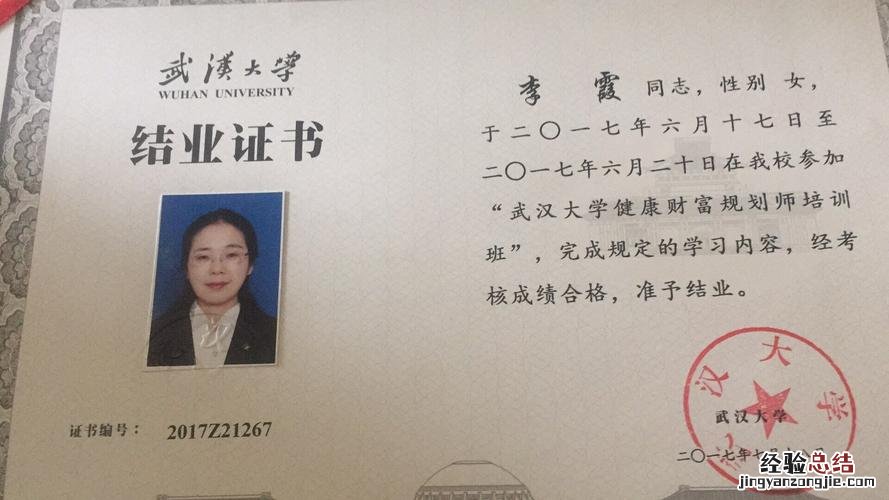 武漢大學
WUHAN UNIVERSITY
结业证书
证书编号：2017Z21267
李霞 同志，性别 女，
于二〇一七年六月十七日至
二〇一七年六月二十日在我校参加
“武汉大学健康财富规划师培训
班”，完成规定的学习内容，经考
核成绩合格，准予结业。
武汉大学
武汉大学
二〇一七年七月
经验总结
jingyanzongjie.com